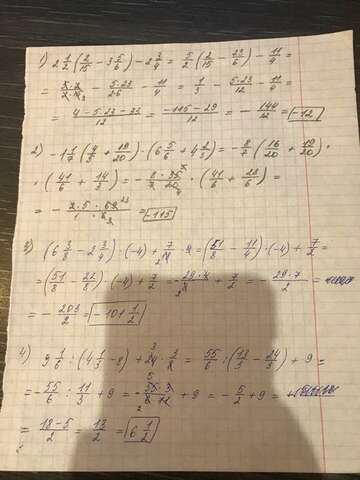 1) 2 1/2 (2/15 - 3 5/6) - 2 3/4 = 5/2 (2/15 - 23/6) - 11/4 =
= 5·2/2·15 3 - 5·23/2·6 - 11/4 = 1/3 - 5·23/12 - 11/4 =
= 4-5·23-33/12 = -115-29/12 = - 144/12 = -12
2) -1 1/7 (4/5 + 19/20) · (6 5/6 + 4 2/3) = - 8/7 (16/20 + 19/20) ·
· (41/6 + 14/3) = - 8·35/7·20 4 · (41/6 + 28/6) =
= - 2·5·69 23/1·6 = -115
3) (6 3/8 - 2 3/4) · (-4) + 7/2 = (51/8 - 11/4) · (-4) + 7/2 =
= (51/8 - 22/8) · (-4) + 7/2 = - 29·4/8 2 + 7/2 = - 29·7/2 =
= - 203/2 = -101 1/2
4) 9 1/6 : (4 1/3 - 8) + 24 · 3/8 = 55/6 : (13/3 - 24/3) + 9 =
= - 55/6 : 11/3 + 9 = - 55·3/6·11 + 9 = - 5/2 + 9 =
= 18-5/2 = 13/2 = 6 1/2